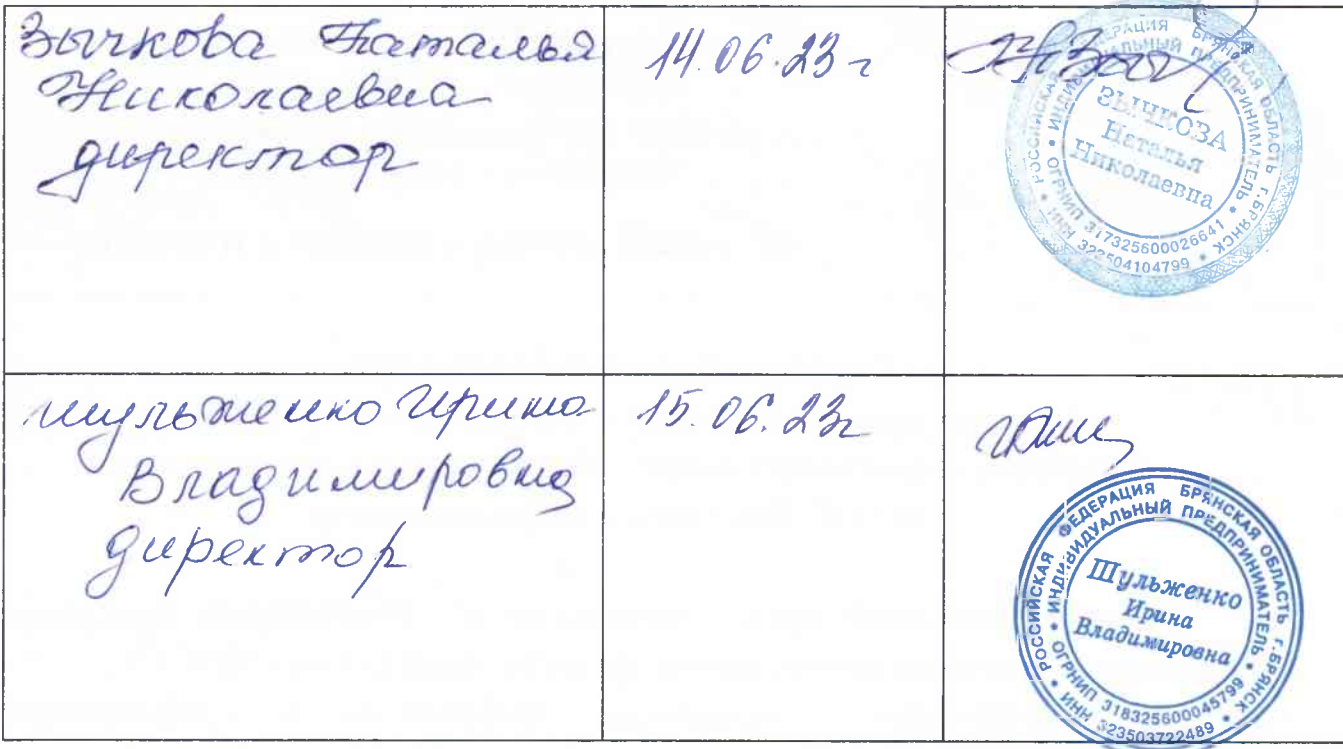 Зычкова Наталья
Николаевна
директор
14.06.23 г
РОССИЙСКАЯ ФЕДЕРАЦИЯ БРЯНСКАЯ ОБЛАСТЬ г.БРЯНСК
ИНДИВИДУАЛЬНЫЙ ПРЕДПРИНИМАТЕЛЬ
ЗЫЧКОВА
Наталья
Николаевна
ОГРНИП 317325600026641
ИНН 323504104799
Шульженко Ирина
Владимировна
директор
15.06.23г
РОССИЙСКАЯ ФЕДЕРАЦИЯ БРЯНСКАЯ ОБЛАСТЬ г.БРЯНСК
ИНДИВИДУАЛЬНЫЙ ПРЕДПРИНИМАТЕЛЬ
Шульженко
Ирина
Владимировна
ОГРНИП 318325600045799
ИНН 323503722489